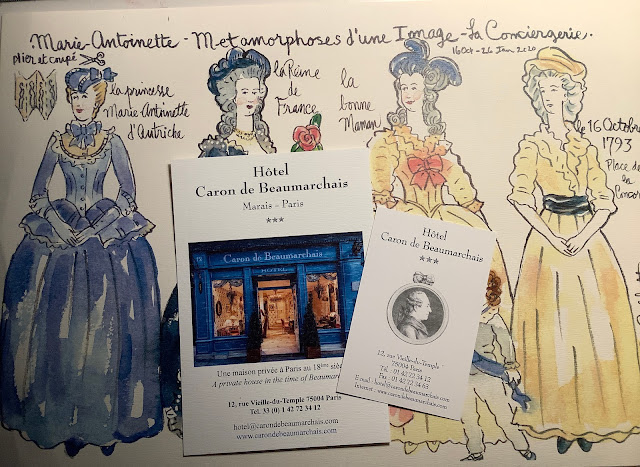 Marie-Antoinette - Metamorphoses d'une Image - La Conciergerie.
16 Oct - 26 Jan 2020
plier et coupé
la princesse
Marie-Antoinette
d'Autriche
la Reine
de
France
la
bonne
Maman
le 16 Octobre
1793
Place de
la
Concor
Hôtel
Caron de Beaumarchais
Marais - Paris
***
Caron de Beaumarchais
HOTEL
Une maison privée à Paris au 18ème siè
A private house in the time of Beaumar
12, rue Vieille-du-Temple 75004 Paris
Tel. 33 (0) 1 42 72 34 12
hotel@carondebeaumarchais.com
www.carondebeaumarchais.com
Hôtel
Caron de Beaumarchais
***
12, rue Vieille-du-Temple
75004 Paris
Tél. - 01 42 72 34 12
Fax - 01 42 72 34 63
E-mail - hotel@carondebeaumarchais.com
Internet - www.carondebeaumarchais.com